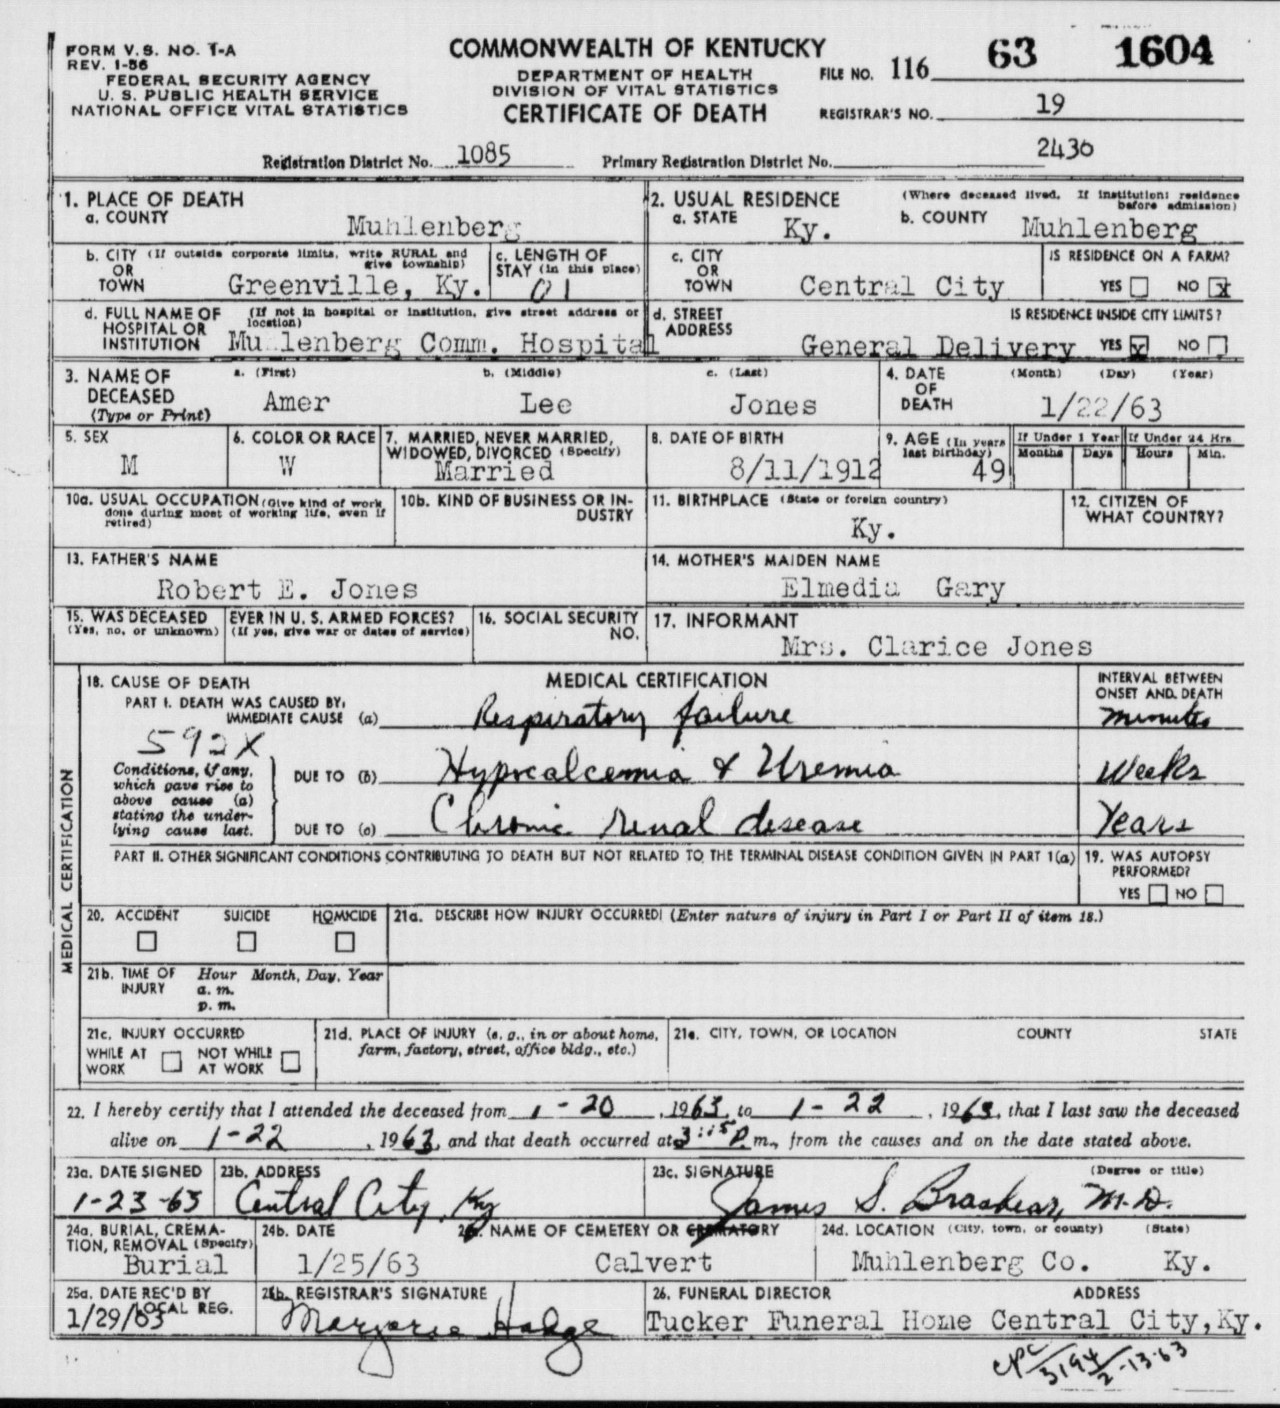 FORM V. S. NO. 1-A
REV. 1-56
FEDERAL SECURITY AGENCY
U. S. PUBLIC HEALTH SERVICE
NATIONAL OFFICE VITAL STATISTICS
COMMONWEALTH OF KENTUCKY
DEPARTMENT OF HEALTH
DIVISION OF VITAL STATISTICS
CERTIFICATE OF DEATH
FILE NO. 116 63 1604
REGISTRAR'S NO. 19
Registration District No. 1085 Primary Registration District No. 2430
1. PLACE OF DEATH
a. COUNTY Muhlenberg
2. USUAL RESIDENCE (Where deceased lived. If institution: residence before admission)
a. STATE Ky. b. COUNTY Muhlenberg
b. CITY (If outside corporate limits, write RURAL and give township)
OR
TOWN Greenville, Ky.
c. LENGTH OF STAY (in this place)
c. CITY
OR
TOWN Central City
IS RESIDENCE ON A FARM?
YES NO x
d. FULL NAME OF HOSPITAL OR INSTITUTION (If not in hospital or institution, give street address or location)
Mu lenberg Comm. Hospital
d. STREET ADDRESS General Delivery
IS RESIDENCE INSIDE CITY LIMITS?
YES x NO
3. NAME OF DECEASED (Type or Print)
a. (First) b. (Middle) c. (Last)
Amer Lee Jones
4. DATE OF DEATH (Month) (Day) (Year)
1/22/63
5. SEX
M
6. COLOR OR RACE
W
7. MARRIED, NEVER MARRIED, WIDOWED, DIVORCED (Specify)
Married
8. DATE OF BIRTH
8/11/1912
9. AGE (In years last birthday)
49
If Under 1 Year If Under 24 Hrs.
Months Days Hours Min.
10a. USUAL OCCUPATION (Give kind of work done during most of working life, even if retired)
10b. KIND OF BUSINESS OR INDUSTRY
11. BIRTHPLACE (State or foreign country)
Ky.
12. CITIZEN OF WHAT COUNTRY?
13. FATHER'S NAME
Robert E. Jones
14. MOTHER'S MAIDEN NAME
Elmedia Gary
15. WAS DECEASED EVER IN U. S. ARMED FORCES?
(Yes, no, or unknown) (If yes, give war or dates of service)
16. SOCIAL SECURITY NO.
17. INFORMANT
Mrs. Clarice Jones
MEDICAL CERTIFICATION
18. CAUSE OF DEATH MEDICAL CERTIFICATION INTERVAL BETWEEN ONSET AND DEATH
PART I. DEATH WAS CAUSED BY:
IMMEDIATE CAUSE (a) Respiratory failure minutes
592X
Conditions, if any, which gave rise to above cause (a) stating the underlying cause last.
DUE TO (b) Hypocalcemia & Uremia Weeks
DUE TO (c) Chronic renal disease Years
PART II. OTHER SIGNIFICANT CONDITIONS CONTRIBUTING TO DEATH BUT NOT RELATED TO THE TERMINAL DISEASE CONDITION GIVEN IN PART 1(a)
19. WAS AUTOPSY PERFORMED?
YES NO
20. ACCIDENT SUICIDE HOMICIDE
21a. DESCRIBE HOW INJURY OCCURRED! (Enter nature of injury in Part I or Part II of item 18.)
21b. TIME OF INJURY Hour Month, Day, Year
a. m.
p. m.
21c. INJURY OCCURRED
WHILE AT WORK NOT WHILE AT WORK
21d. PLACE OF INJURY (e. g., in or about home, farm, factory, street, office bldg., etc.)
21e. CITY, TOWN, OR LOCATION COUNTY STATE
22. I hereby certify that I attended the deceased from 1-20, 1963, to 1-22, 1963, that I last saw the deceased
alive on 1-22, 1963, and that death occurred at 3:15 P m., from the causes and on the date stated above.
23a. DATE SIGNED
1-23-63
23b. ADDRESS
Central City, Ky
23c. SIGNATURE (Degree or title)
James S. Brashear, M.D.
24a. BURIAL, CREMATION, REMOVAL (Specify)
Burial
24b. DATE
1/25/63
NAME OF CEMETERY OR CREMATORY
Calvert
24d. LOCATION (City, town, or county) (State)
Muhlenberg Co. Ky.
25a. DATE REC'D BY LOCAL REG.
1/29/63
25b. REGISTRAR'S SIGNATURE
Marjorie Hodge
26. FUNERAL DIRECTOR ADDRESS
Tucker Funeral Home Central City, Ky.
cpc 3194 2-13-63